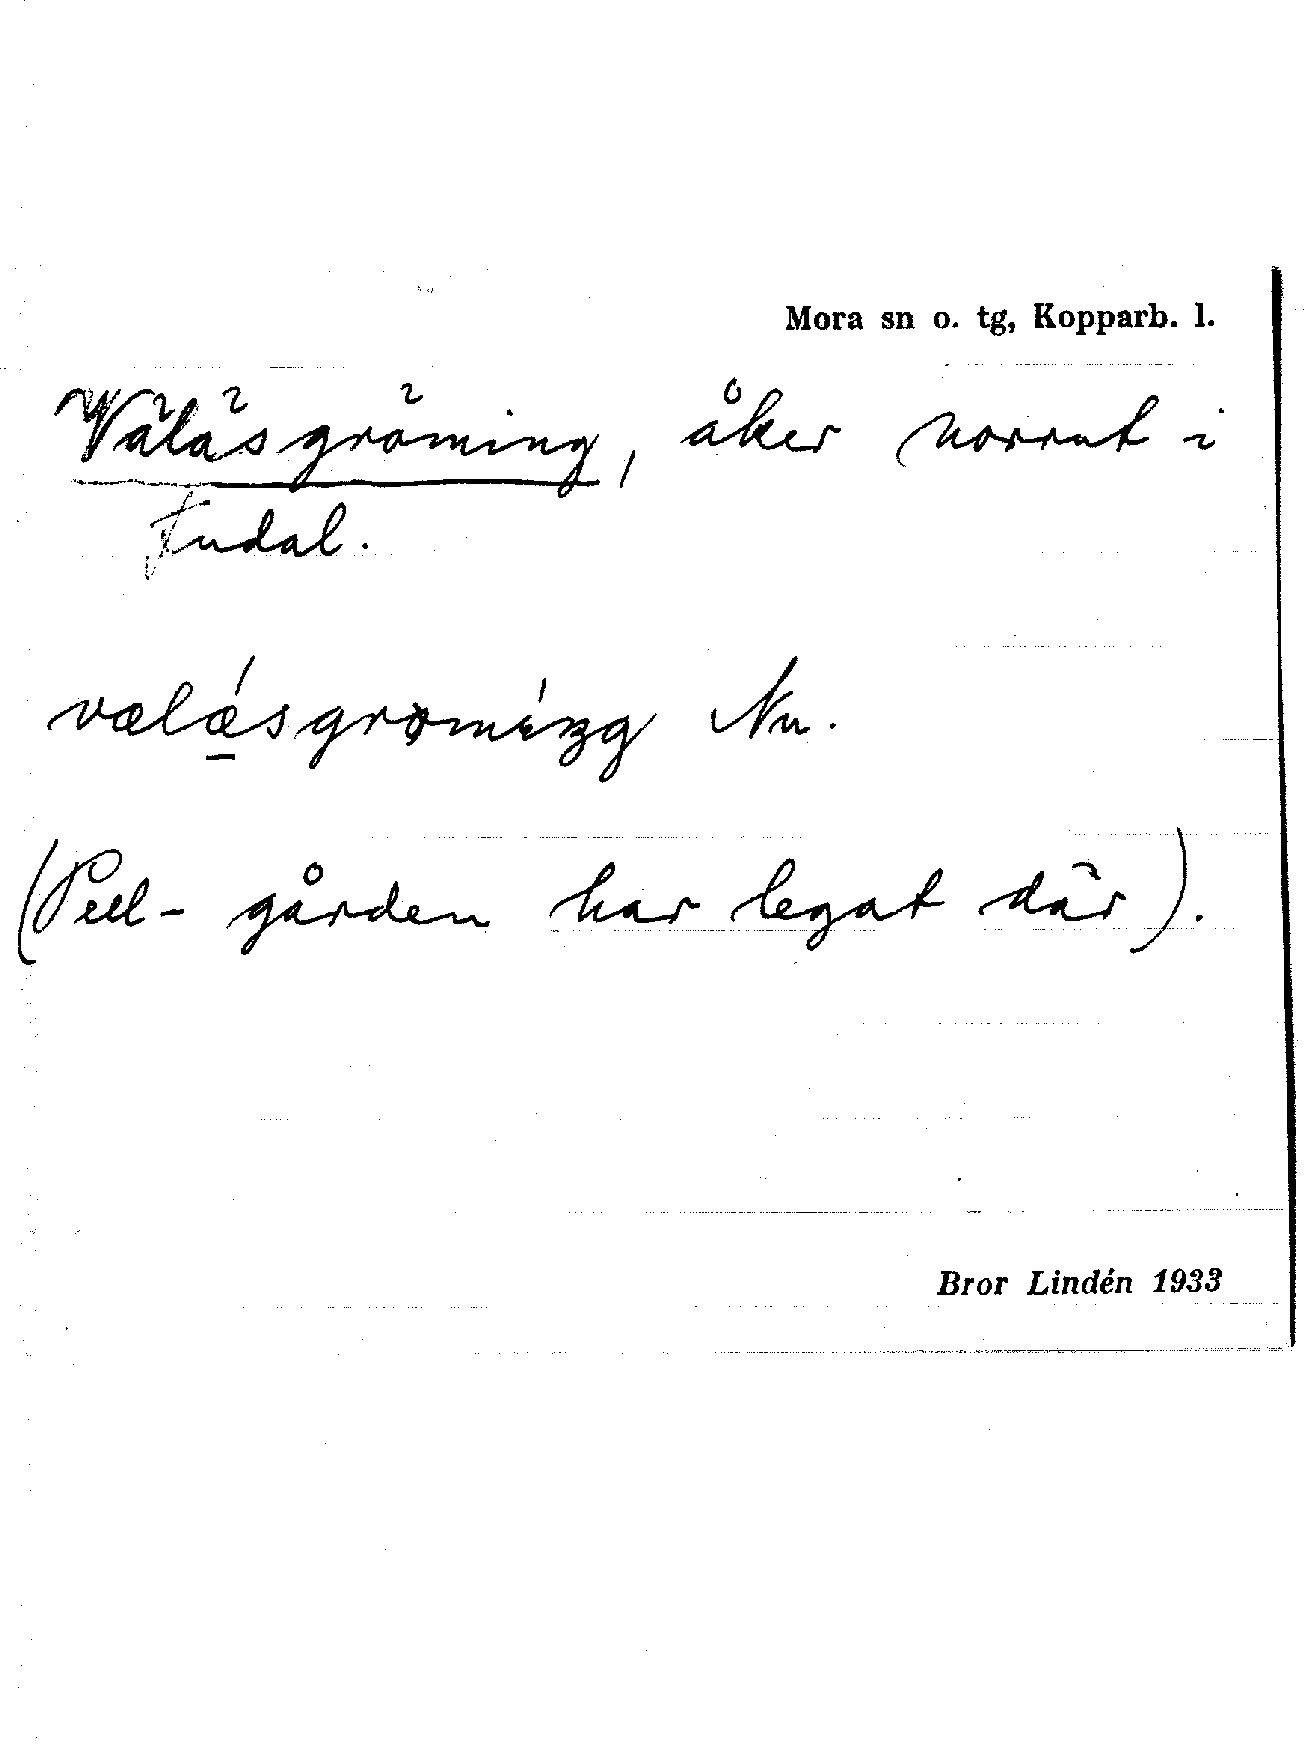 Mora sn o. tg, Kopparb. l.
Väläsgröming, åker norrut i
Indal.
vælǽsgromiŋg Nu.
(Peel-gården har legat där).
Bror Lindén 1933